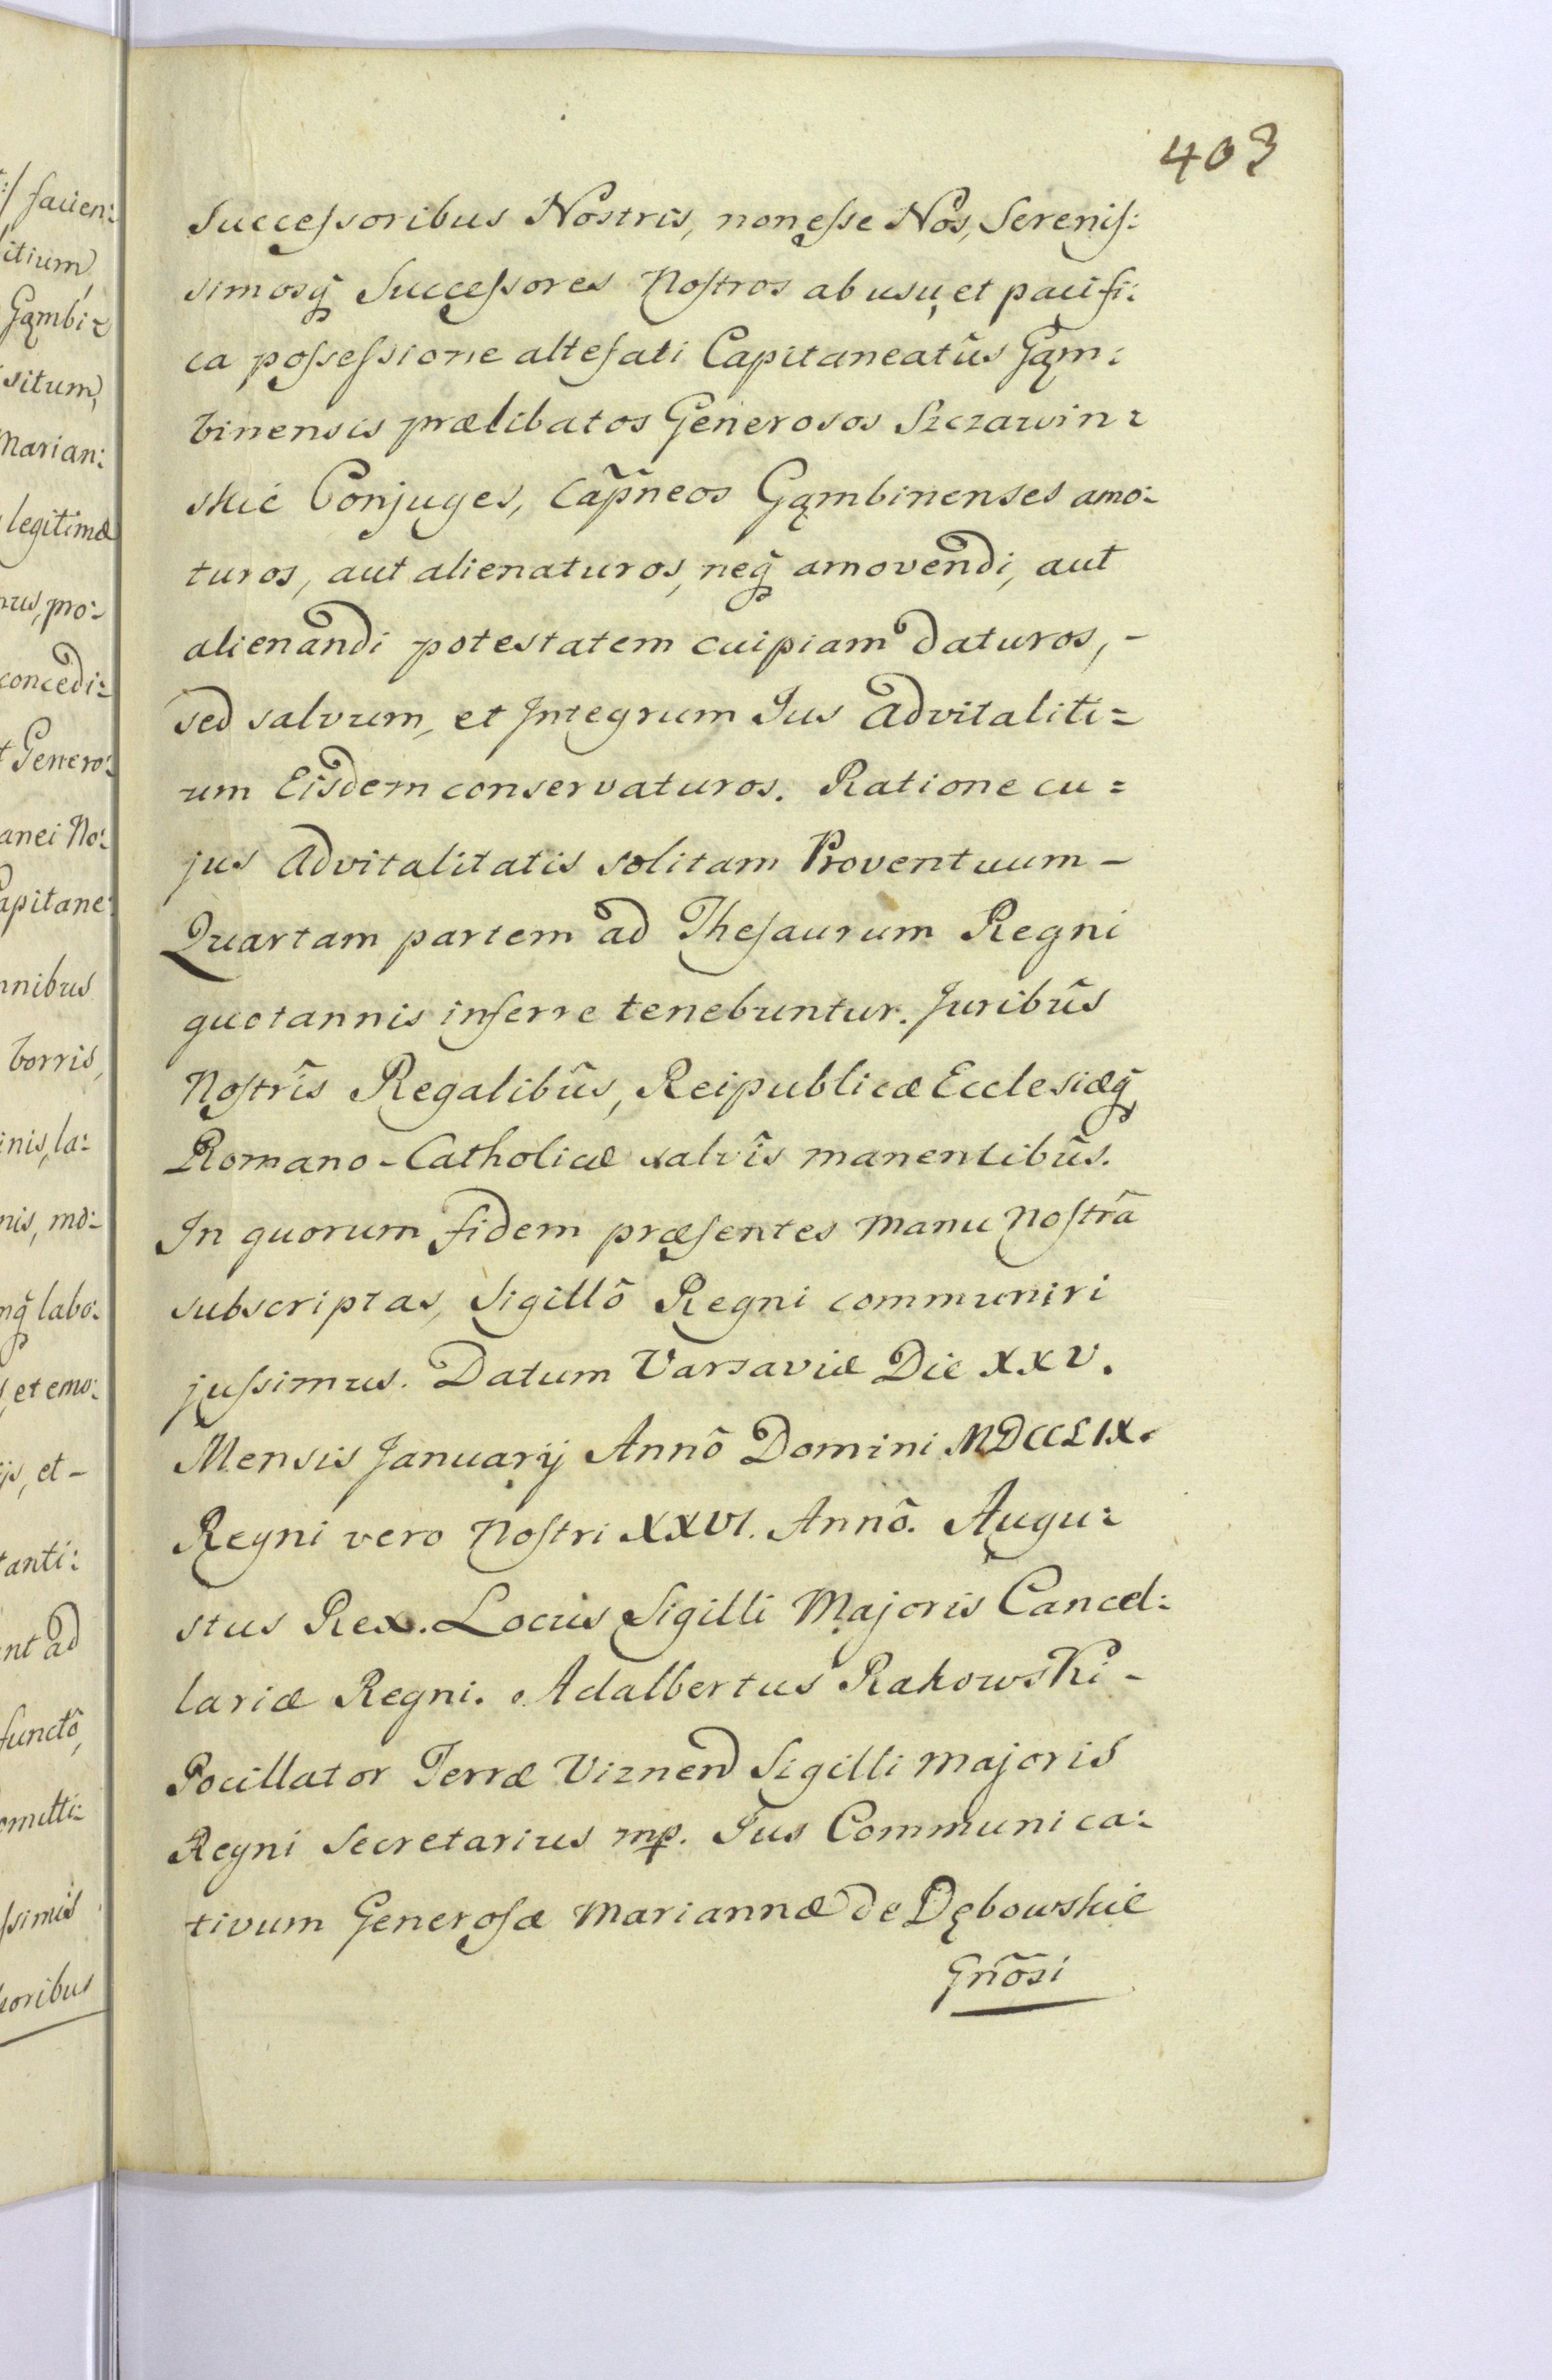 403
Succeſsoribus Nostris, non eſse Nos, Sereniſ:
simosq̃ Succeſsores Noſtros ab usu, et pacifi:
ca poſseſsione alteſati Capitaneatûs Gąm:
binensis prælibatos Generosos Szczawin:
skie Conjuges, Cap̃neos Gąmbinenses amo:
turos, aut alienaturos, neq̃ amovendi, aut
alienandi potestatem cuipiam daturos, -
sed salvum, et Integrum Jus advitaliti=
um Eisdem conservaturos. Ratione cu=
jus advitalitatis solitam Proventuum -
Quartam partem ad Theſaurum Regni
quotannis inferre tenebuntur. Juribûs
Noſtrîs Regalibûs, Reipublicæ Ecclesiæq̃
Romano-Catholicæ salvîs manentibûs.
In quorum fidem præſentes manu Noſtrâ
subscriptas, Sigillô Regni communiri
juſsimus. Datum Varsaviæ Die XXV.
Mensis Januarij Annô Domini MDCCLIX.
Regni vero Noſtri XXVI. Annô. Augu:
stus Rex. Locus Sigilli Majoris Cancel:
lariæ Regni. Adalbertus Rakowski -
Pocillator Terræ Viznen Sigilli Majoris
Regni Secretarius mp. Jus Communica:
tivum Generoſæ Mariannæ de Dębowskie
Gñosi
/ facien:
itium,
Gąmbi:
situm,
Marian:
legitimæ
pro:
concedi:
Genero:
anei No:
apitane:
nnibus
borris,
inis, la:
nis, mo:
nq̃ labo:
, et emo:
ijs, et -
tanti:
nt ad
functô,
omitti:
ſsimis
oribus